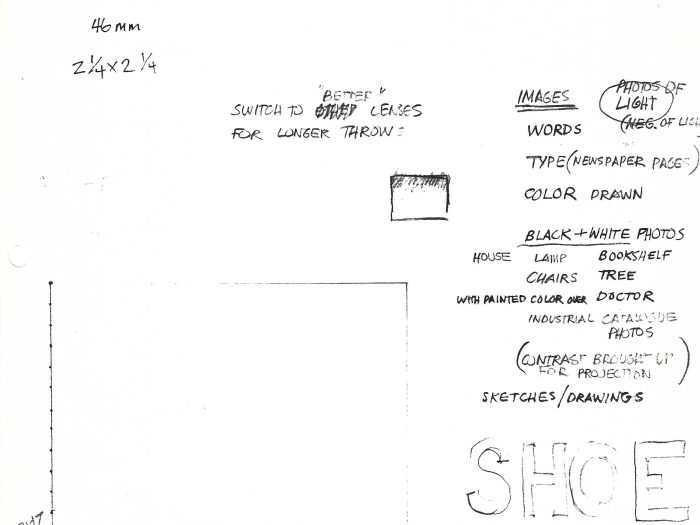 46mm
2 1/4 x 2 1/4
"BETTER"
SWITCH TO LENSES
FOR LONGER THROWS
IMAGES
PHOTOS OF
LIGHT
(NEG. OF LIGH
WORDS
TYPE (NEWSPAPER PAGES)
COLOR DRAWN
BLACK + WHITE PHOTOS
HOUSE LAMP BOOKSHELF
CHAIRS TREE
WITH PAINTED COLOR OVER DOCTOR
INDUSTRIAL CATALOGUE
PHOTOS
(CONTRAST BROUGHT UP
FOR PROJECTION)
SKETCHES/DRAWINGS
SHOE